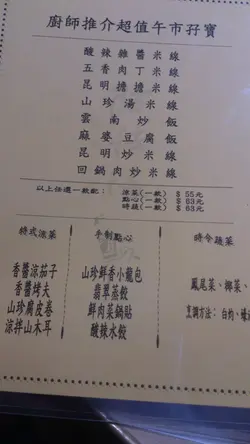 廚師推介超值午市孖寶
酸辣雜醬米線
五香肉丁米線
昆明擔擔米線
山珍湯米線
雲南炒飯
麻婆豆腐飯
昆明炒米線
回鍋肉炒米線
以上任選一款配: 涼菜(一款) $ 55元
點心(一款) $ 63元
時蔬(一款) $ 63元
特式涼菜
香醬涼茄子
香醬烤夫
山珍腐皮卷
涼拌山木耳
手制點心
山珍鮮香小籠包
翡翠蒸餃
鮮肉菜鍋貼
酸辣水餃
時令蔬菜
鳳尾菜、椰菜、
烹調方法: 白灼、